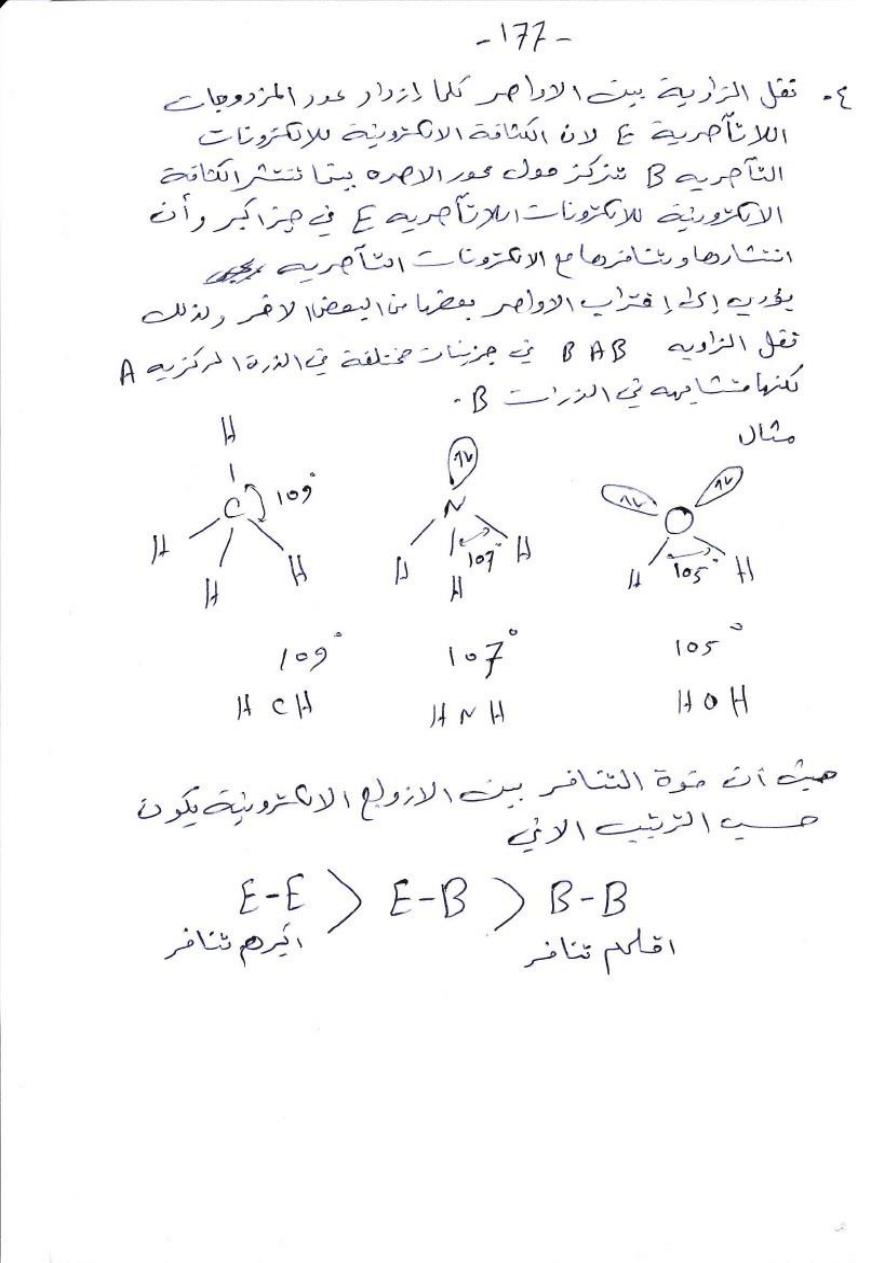 -177-
٤- تقل الزاوية بين الاواصر كلما إزداد عدد المزدوجات
اللاتآصرية E لان الكثافة الالكترونية للالكترونات
التآصريه B تتركز حول محور الاصره بينما تنتشر الكثافة
الالكترونية للالكترونات اللاتآصريه E في حيز اكبر وأن
انتشارها وتنافرها مع الالكترونات التآصريه
يؤدي إلى إقتراب الاواصر بعضها من البعض الاخر ولذلك
تقل الزاويه BAB في جزيئات مختلفة في الذرة المركزيه A
لكنها متشابهه في الذرات B.
مثال
H C 109° H H H
N ١٧ 107° H H H
O ١٧ ١٧ 105° H H
109° 107° 105°
HCH HNH HOH
حيث أن قوة التنافر بين الازواج الالكترونية يكون
حسب الترتيب الاتي
E-E > E-B > B-B
اكبرهم تنافر اقلهم تنافر